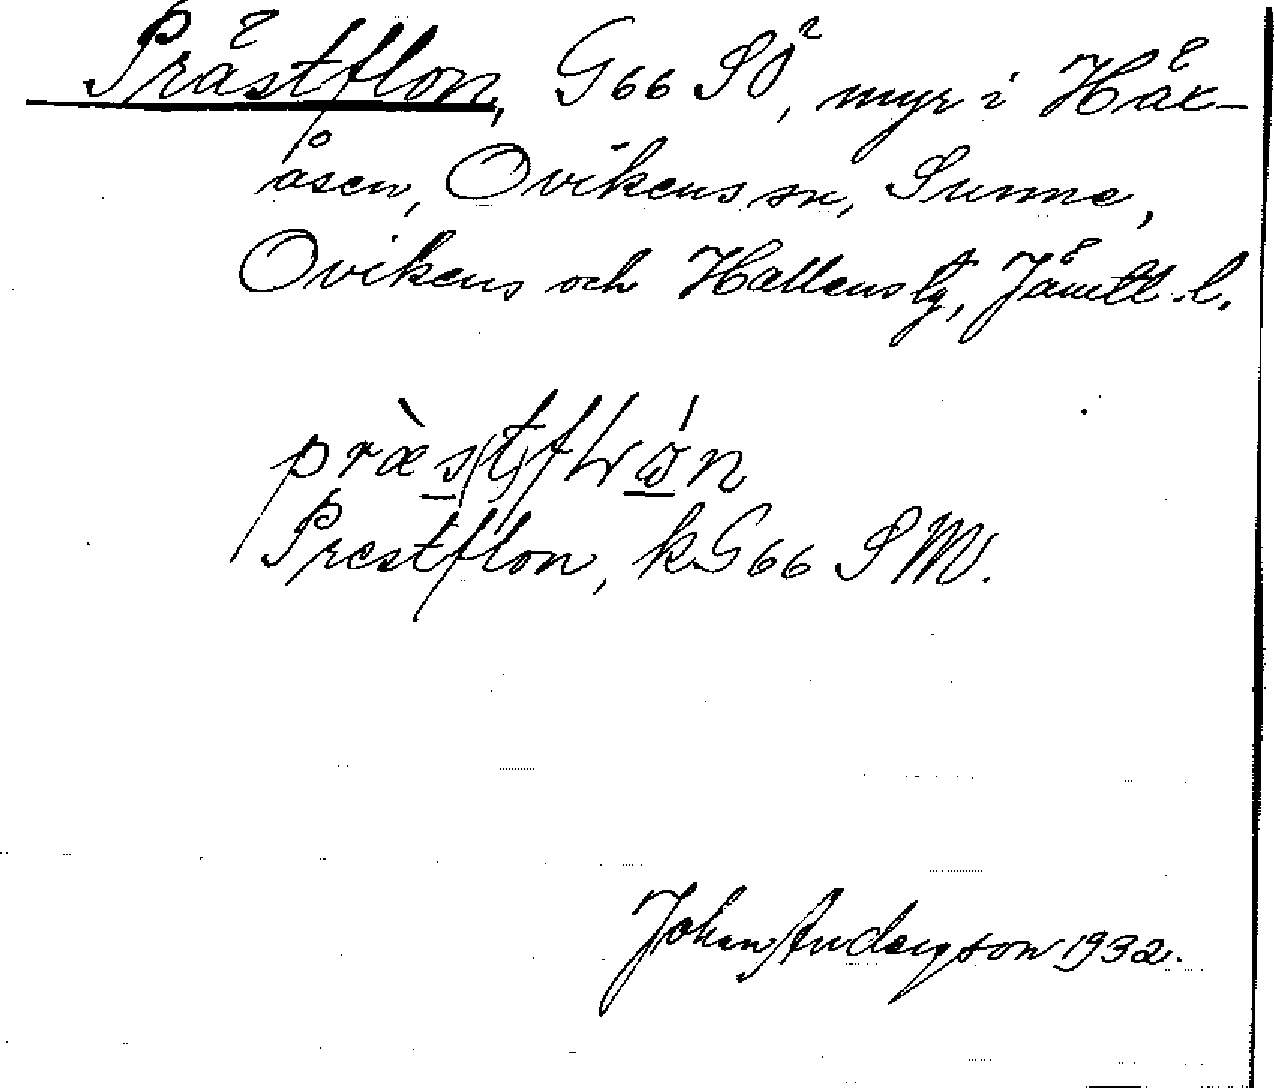 Prästflon, G66 SÖ, myr i Häk-
åsen, Ovikens sn, Sunne,
Ovikens och Hallens tg, Jämtl. l.
præst(t)flɷn
Prestflon, kG66 SW.
Johan Anderson 1932.